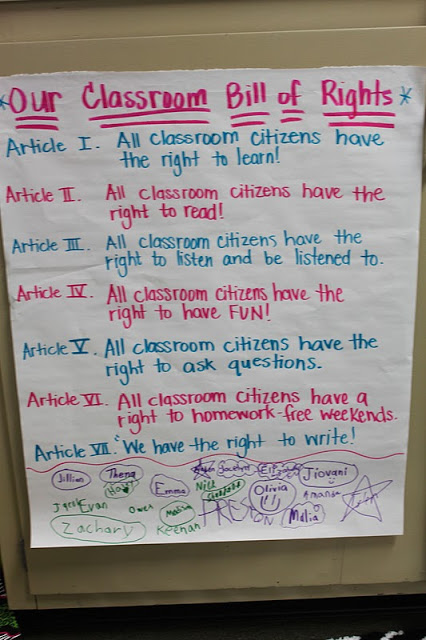 *Our Classroom Bill of Rights*
Article I. All classroom citizens have
the right to learn!
Article II. All classroom citizens have the
right to read!
Article III. All classroom citizens have the
right to listen and be listened to.
Article IV. All classroom citizens have the
right to have FUN!
Article V. All classroom citizens have the
right to ask questions.
Article VI. All classroom citizens have a
right to homework-free weekends.
Article VII. "We have the right to write!
Jillian Thena Jiovani
Emma Nick Olivia Amanda
Evan Owen PRESTON Malia
Zachary Keenan